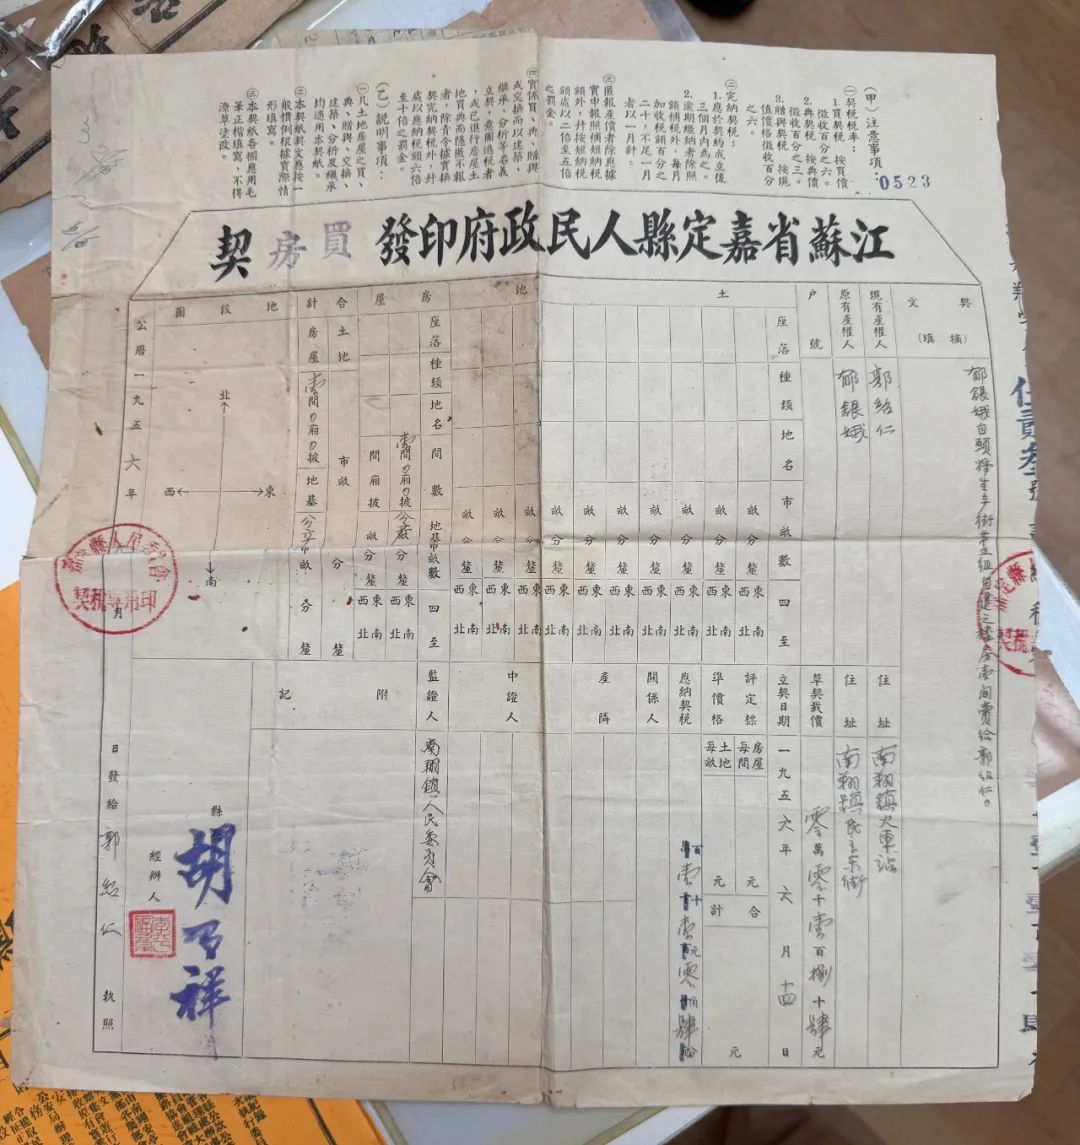 (甲)注意事項：
㊀契稅稅率：
1.買契，按買價
徵收百分之六。
2.典契，按典價
徵收百分之三。
3.贈與契，按現
值價格徵收百分
之六。
㊁完納契稅：
1.應於契約成立後
三個月內為之。
2.逾期繳納者除照
額補稅外，每月
加收稅額百分之
二十，不足一月
者以一月計。
㊂匿報產價者除應據
實申報照補短納稅
額外，并按短納稅
額處以二倍至五倍
之罰金。
㊃實係買、典、贈與
或交換而以建築、
繼承、分析等名義
立契，意圖逃稅者
，或已進行房屋土
地買典而隱匿不報
者，除責令據實換
契完納契稅外，并
處以應納稅額六倍
至十倍之罰金。
(乙)說明事項：
㊀凡土地房屋之買、
典、贈與、交換、
建築、分析及繼承
均適用本契紙。
㊁本契紙契文應按一
般慣例根據實際情
形填寫。
㊂本契紙各欄應用毛
筆正楷填寫，不得
潦草塗改。
0523
江蘇省嘉定縣人民政府印發買房契
契文(摘填)
郁銀娥自願將生產街第五組自建三樓房壹间賣给郭紹仁。
現有產權人 郭紹仁 住址 南翔鎮火車站
原有產權人 郁銀娥 住址 南翔鎮民主東街
戶號
草契裁價 零萬零千壹百捌十肆元
立契日期 一九五六年六月十四日
土地
座落
種類
地名
市畝數
畝分釐
四至
東南西北
評定標準價格
房屋每間 元
土地每畝 元
合計 元
應納契稅 壹十壹元零角肆分
關係人
產鄰
中證人
監證人 南翔鎮人民委員會
房屋
座落
種類
地名
間數
壹間0廂0披
間廂披
地基市畝數
畝分釐
四至
東南西北
合計
土地 市畝 分 釐
房屋 壹間0廂0披地基 市畝 分 釐
附記
地段圖
北
東
南
西
公曆一九五六年 月 日發給郭紹仁執照
縣長 胡乃祥
經辦人
契稅專用印